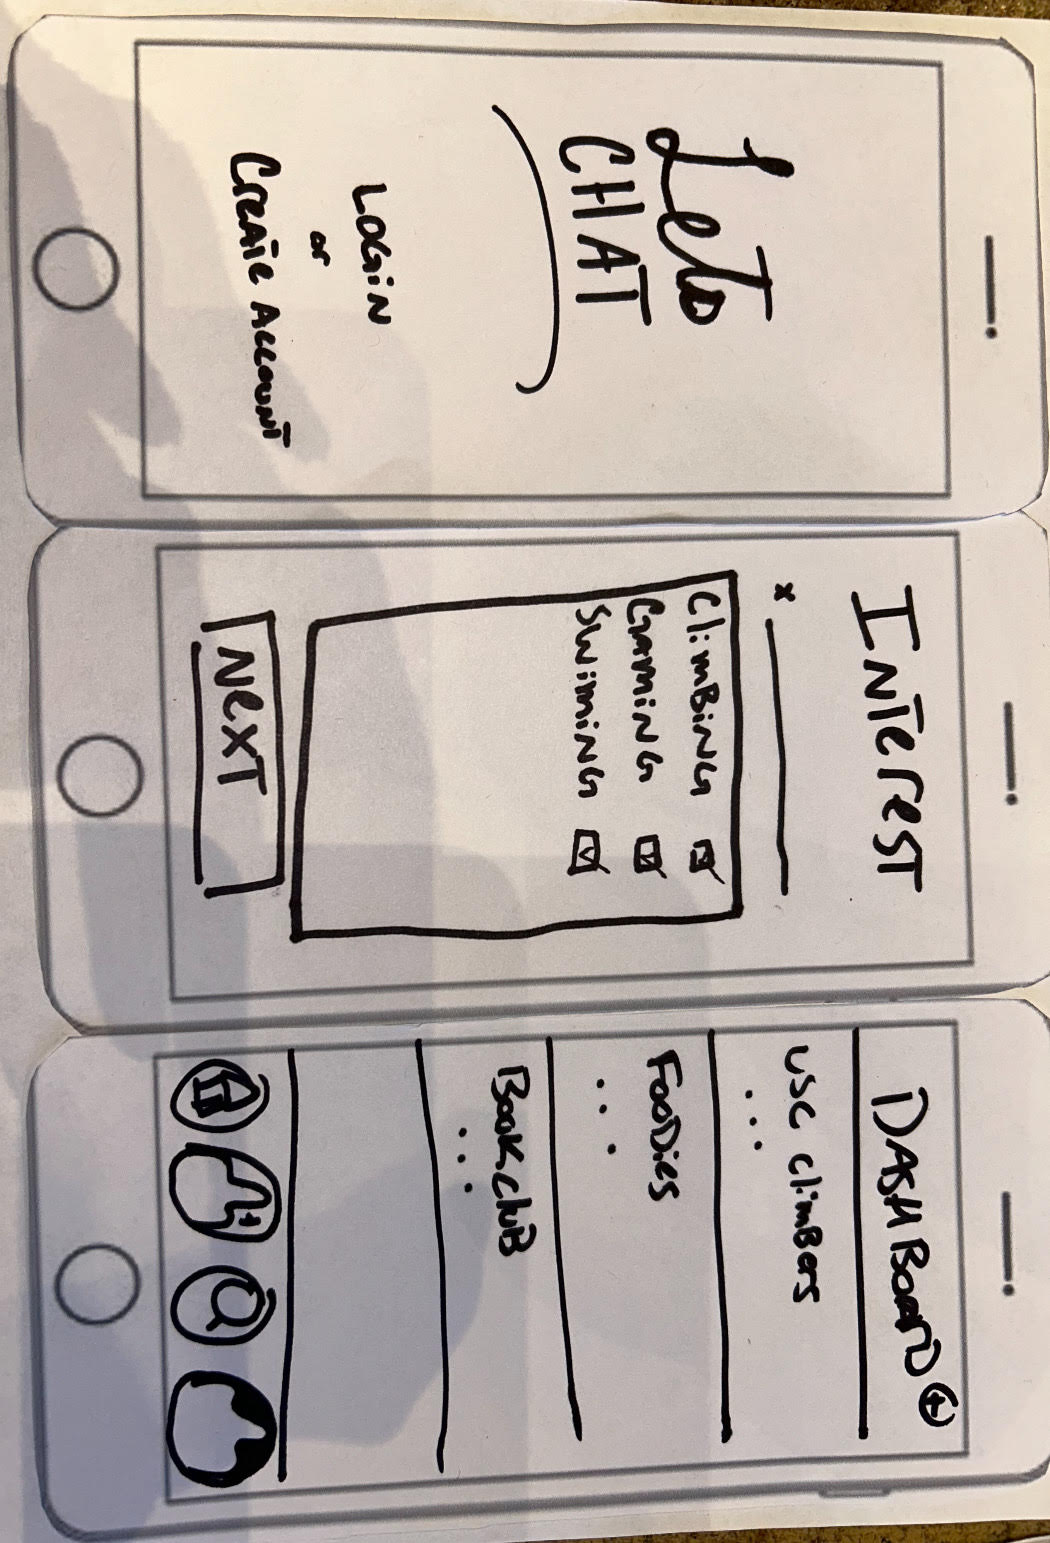 Lets
CHAT
LOGiN
or
CreATe AccouNT
INTeresT
x
climBiNG
GAMiNG
SwimiNG
NexT
DASHBoarD +
USC climBers
...
FooDies
...
Book cluB
...